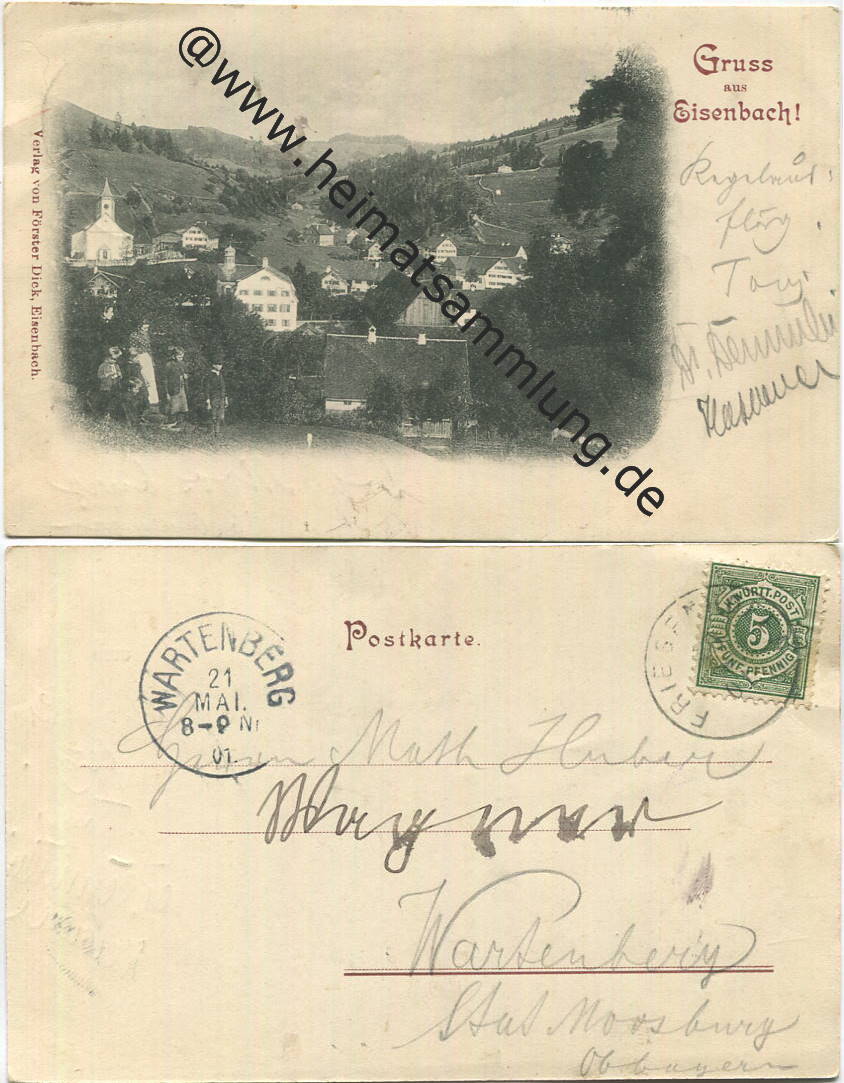 @www.heimatsammlung.de
Gruss
aus
Eisenbach!
Verlag von Förster Dick, Eisenbach.
Tony
Postkarte.
WARTENBERG
21
MAI.
8-9 N
01
FRIESEN
K. WÜRTT. POST
5
FÜNF PFENNIG
Herrn Math Huber
Wagner
Wartenberg
Stat Moosburg
Obbayern